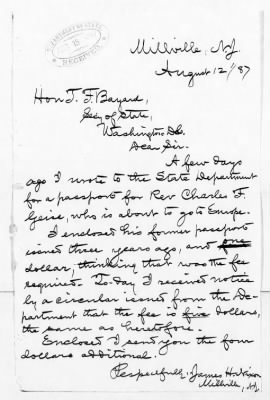 DEPARTMENT OF STATE
RECEIVED
Millville, N.J.
August 12/87
Hon T. F. Bayard,
Secy of State,
Washington D.C.
Dear Sir.
A few days
ago I wrote to the State Department
for a passport for Rev Charles F.
Geise, who is about to go to Europe.
I enclosed his former passport
issued three years ago, and one
dollar, thinking that was the fee
required. To-day I received notice
by a circular issued from the De-
partment that the fee is five dollars,
the same as heretofore.
Enclosed I send you the four
dollars additional.
Respectfully, James H. Nixon
Millville, N.J.